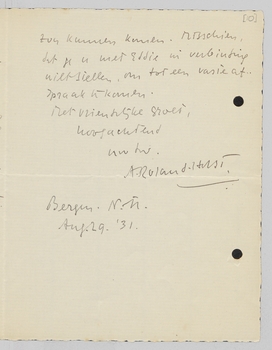 [10]
zou kunnen komen. Misschien
je u met Eddie in verbinding
wilt stellen, om tot een vaste af-
spraak te komen.
Met vriendelijke groet,
hoogachtend
uw dw.
A Roland Holst.
Bergen. N.H.
Aug. 29. '31.